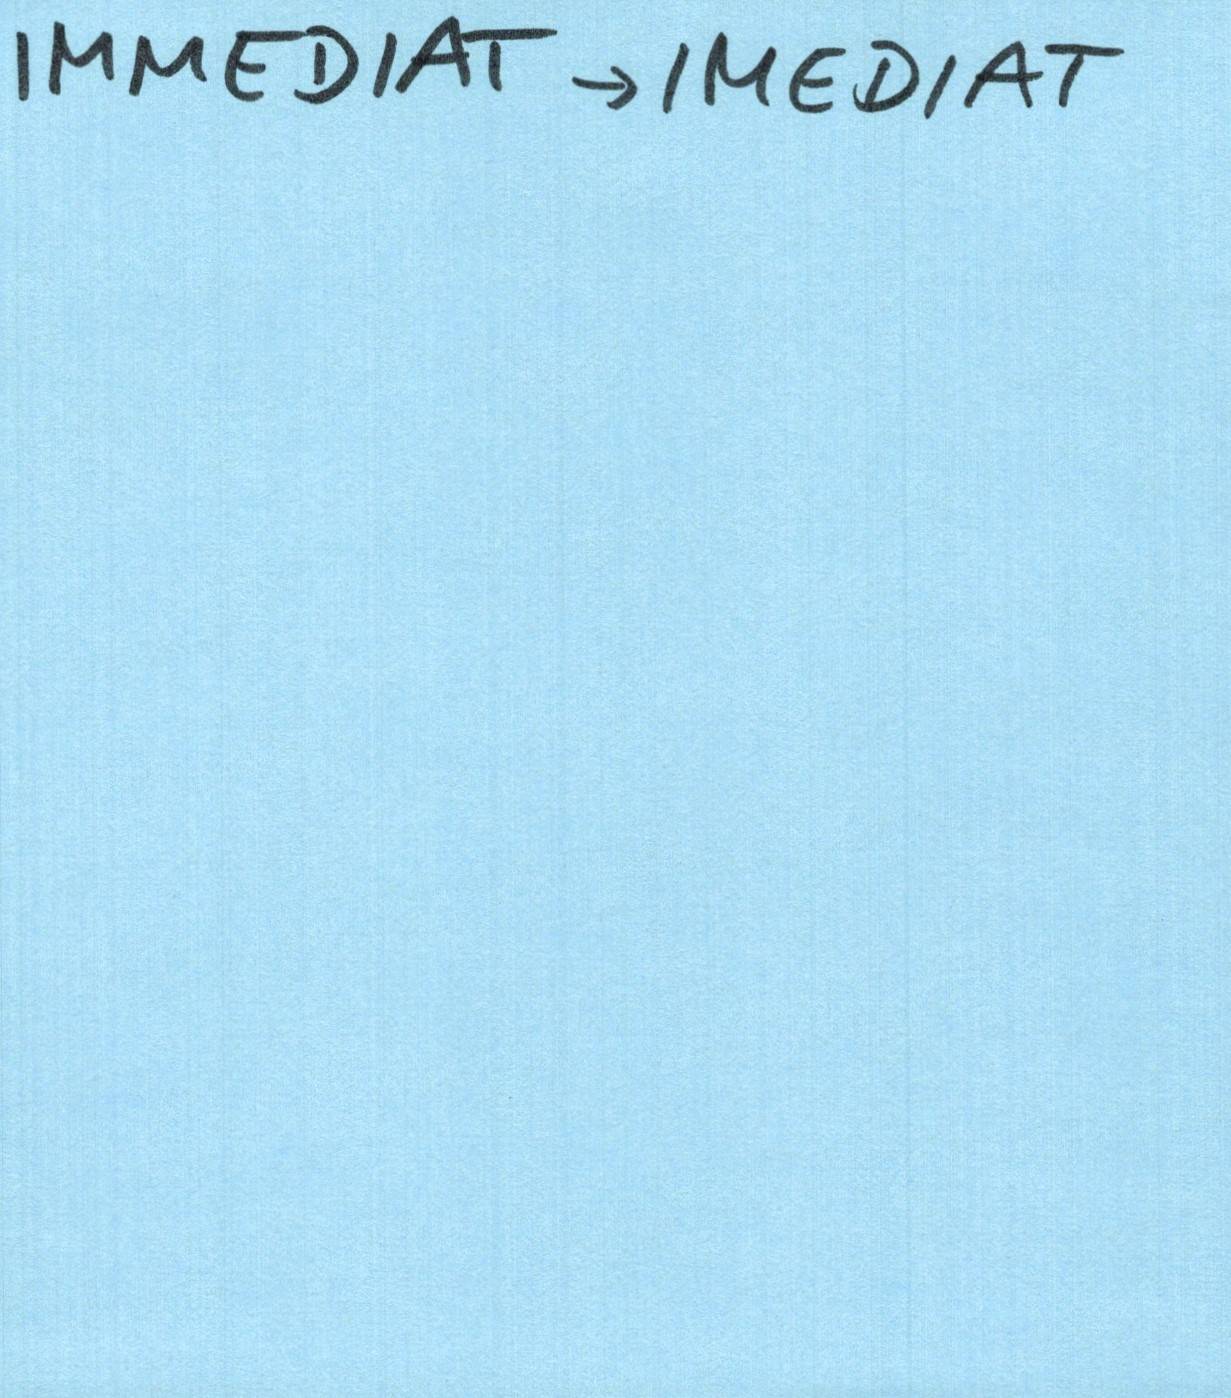 IMMEDIAT → IMEDIAT